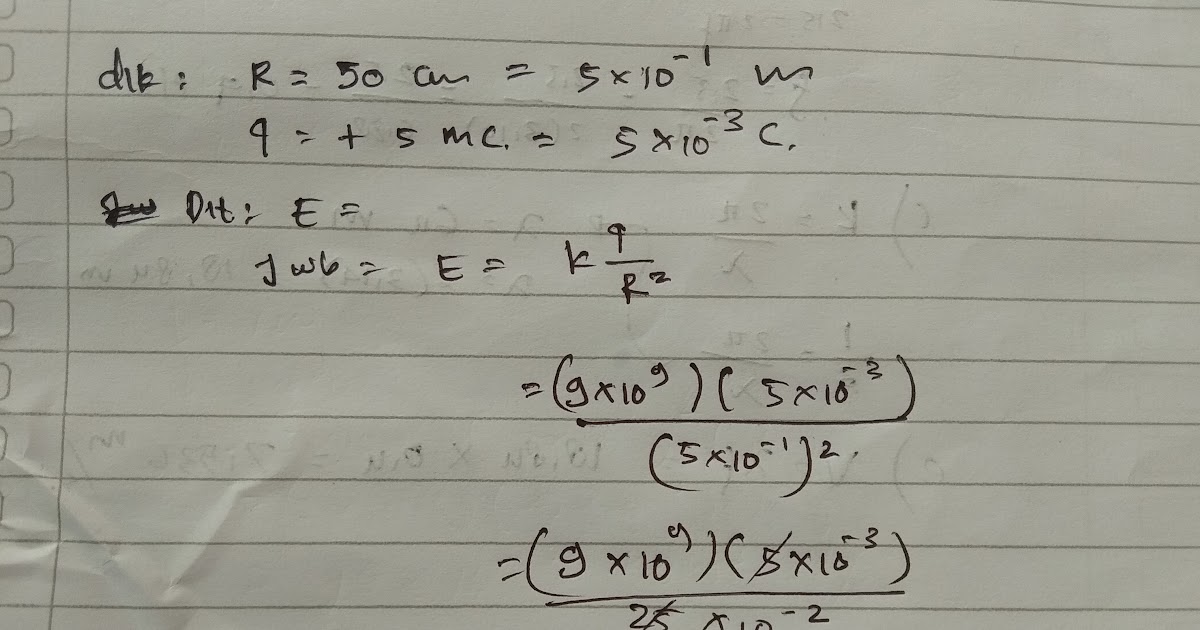 dik : R = 50 cm = 5 x 10⁻¹ m
q = + 5 mC. = 5 x 10⁻³ C.
Dit : E =
Jwb = E = k q/R²
= (9 x 10⁹) (5 x 10⁻³) / (5 x 10⁻¹)².
= (9 x 10⁹) (5 x 10⁻³) / 25 x 10⁻²